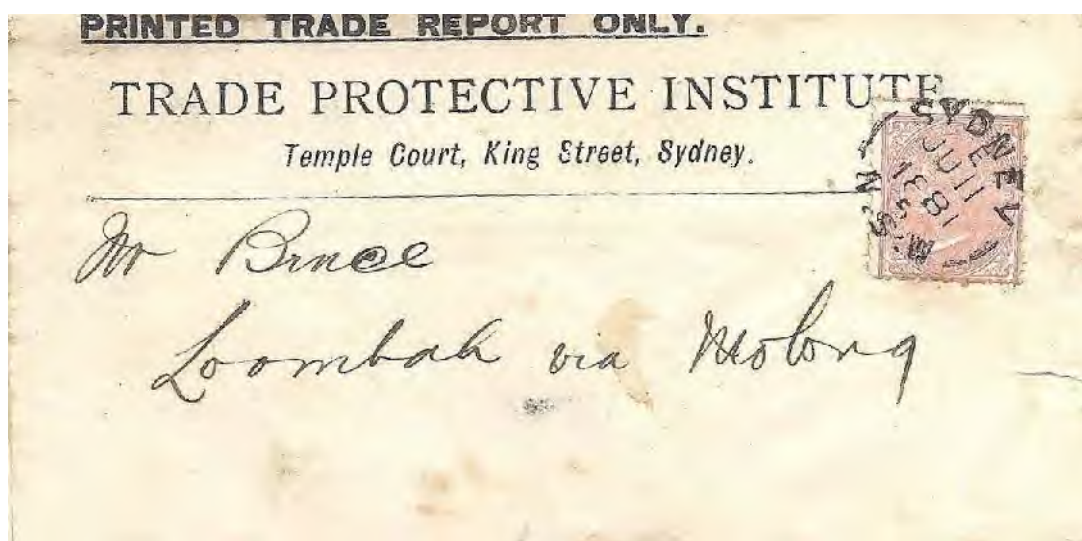 PRINTED TRADE REPORT ONLY.
TRADE PROTECTIVE INSTITUTE
Temple Court, King Street, Sydney.
SYDNEY
E
JU 11
N.S.W
Mr Bruce
Loombah via Molong